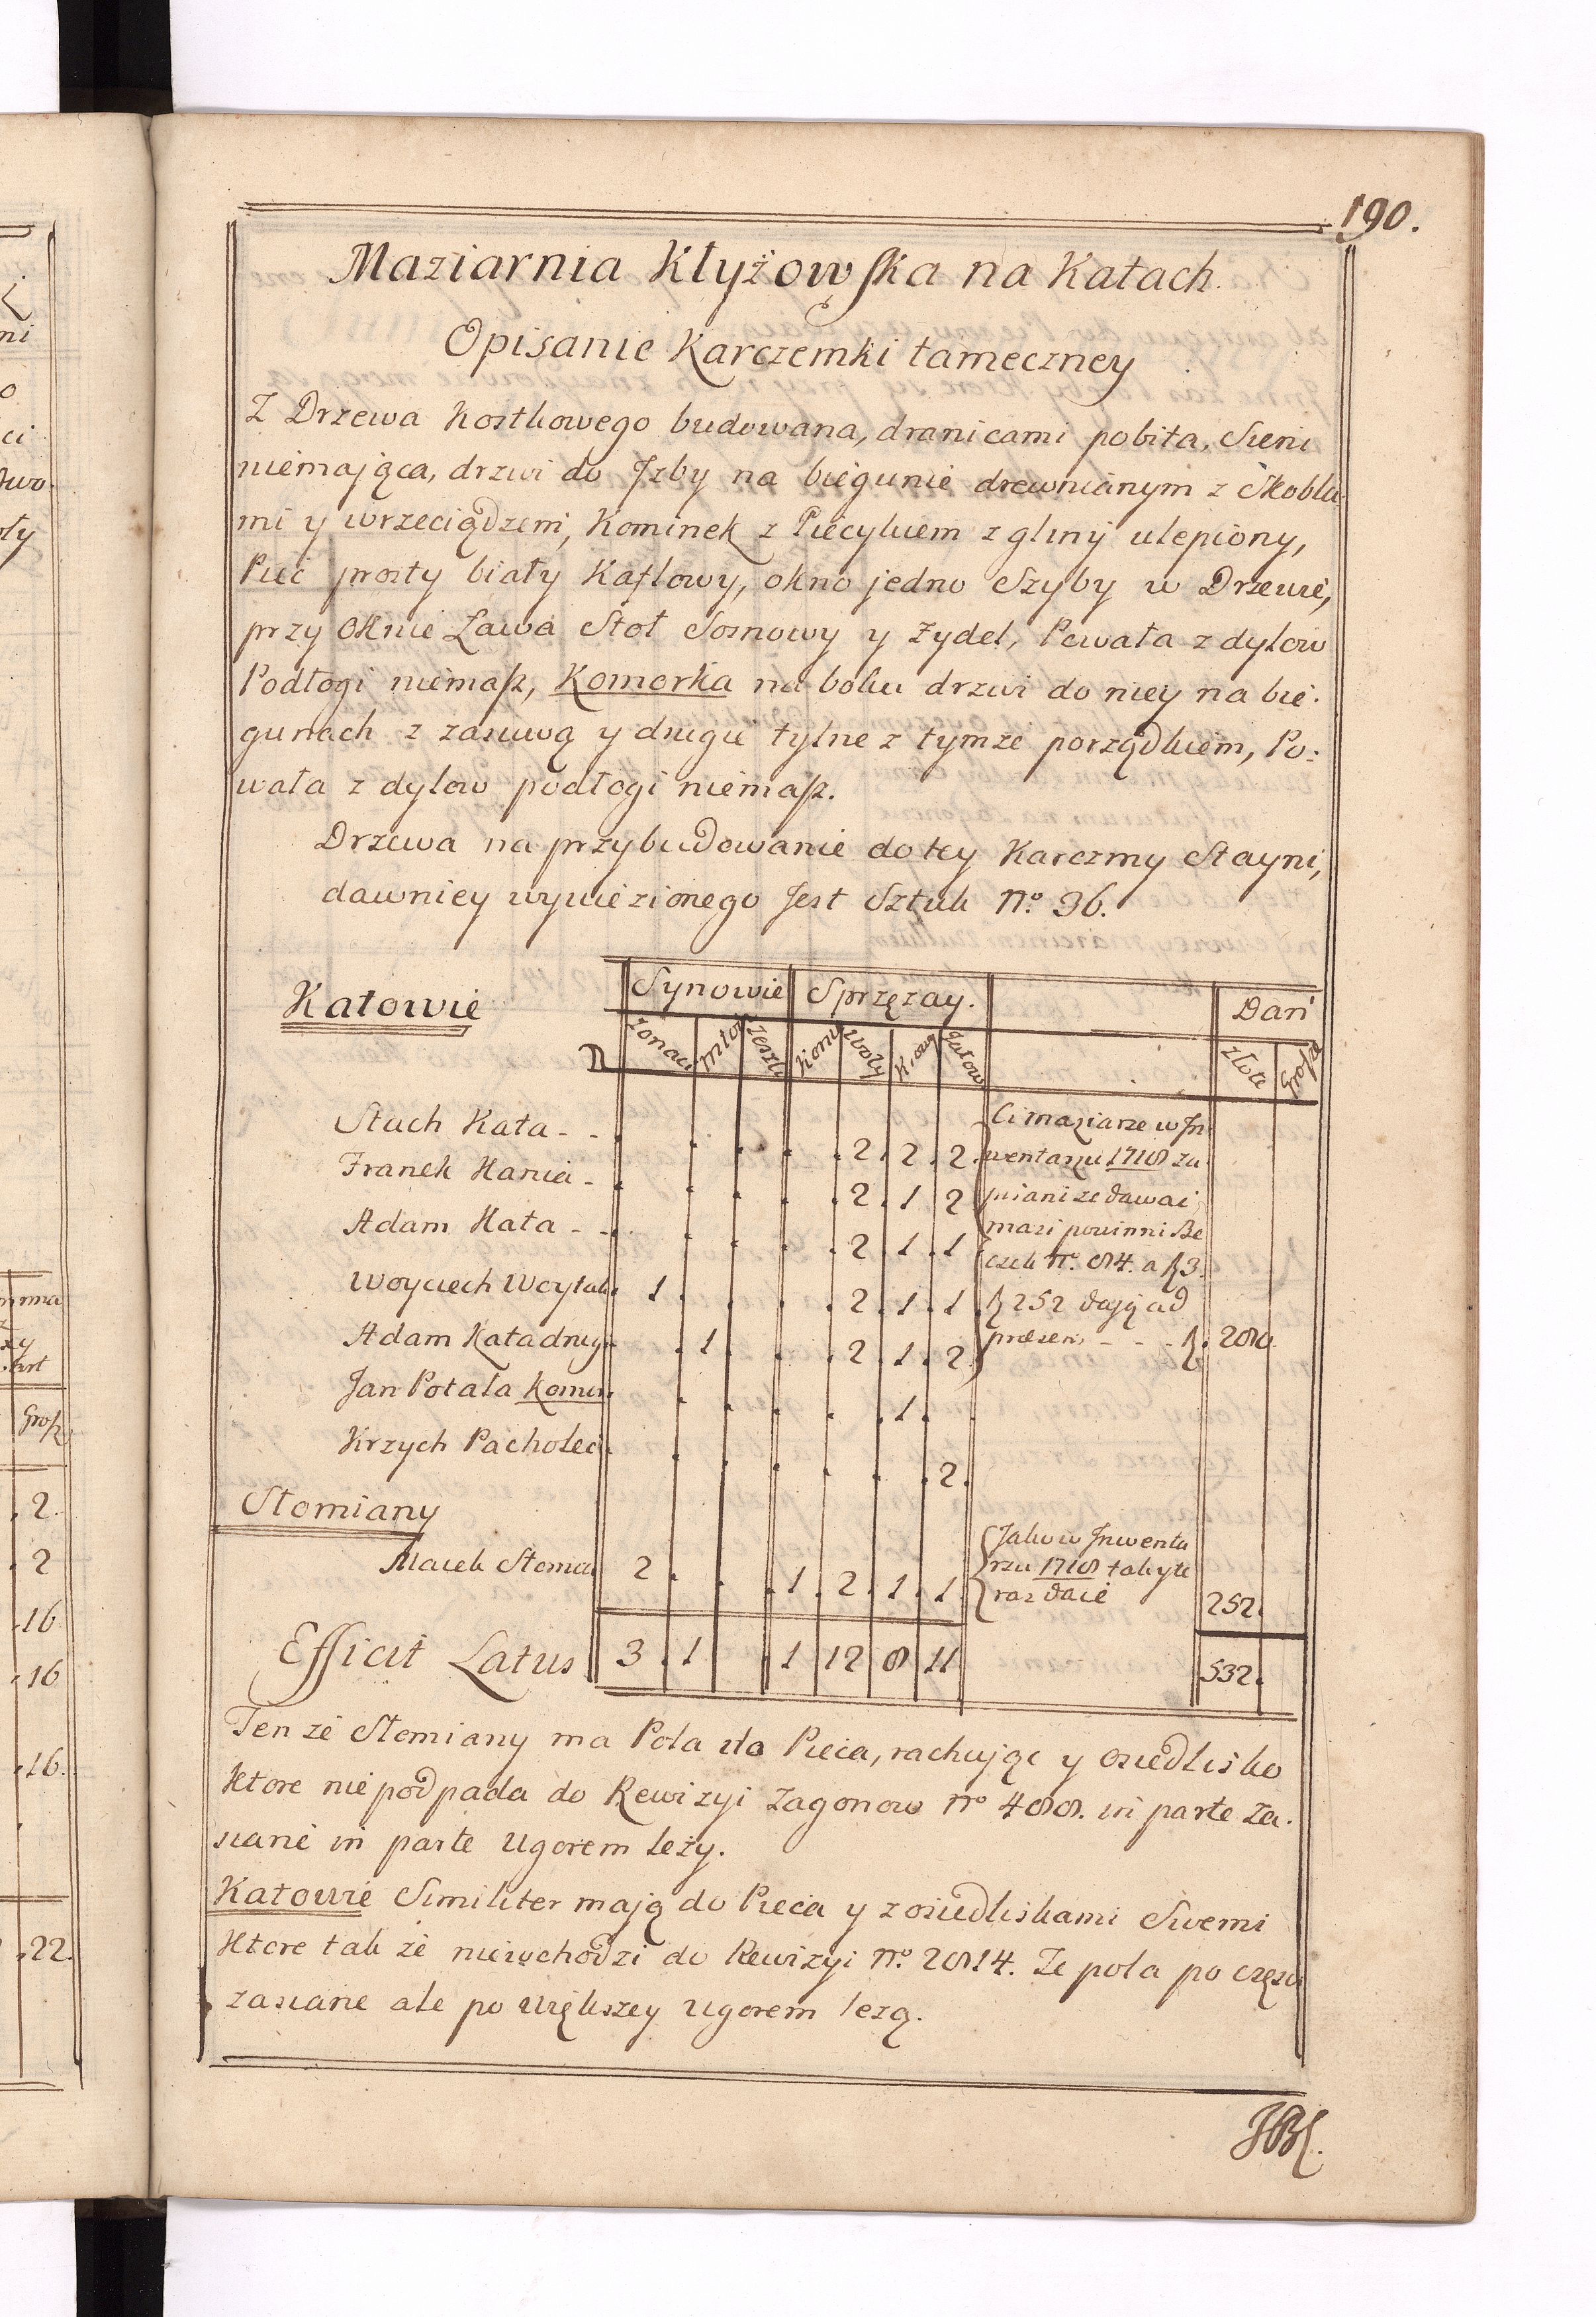 190.
Maziarnia Kłyżowska na Kątach.
Opisanie Karczemki tameczney
Z Drzewa kostkowego budowana, dranicami pobita, Sieni
niemaiąca, drzwi do Jzby na biegunie drewnianym z Skobla
mi y wrzeciądzem, Kominek z Piecykiem z gliny ulepiony,
Piec prosty biały Kaflowy, okno jedno Szyby w Drzewie,
przy oknie Ława Stoł Sosnowy y Zydel, Powała z dylow
Podłogi niemasz, Komorka na boku drzwi do niey na bie-
gunach z zasuwą y drugie tylne z tymże porządkiem, Po:
wała z dylow podłogi niemasz.
Drzewa na przybudowanie do tey Karczmy Stayni,
dawniey wywiezionego Jest Sztuk No. 36.
Katowie Synowie Sprzęzay. Dań
N żonaci Młod Zeszli Koni Woły Krowy Jałow Złote Grosze
Stach Kata - - . . . . . 2 . 2 . 2
Franek Kania - . . . . . 2 . 1 2
Adam Kata - - . . . . 2 . 1 . 1
Woyciech Woytak 1 . . . . 2 . 1 . 1
Adam Kata drugi . 1 . . 2 . 1 . 2
Ci maziarze w Jn
wentarzu 1718 za
pisani że dawać
mazi powinni Be
czek No. 84. a f 3.
f 252 dają ad
præsens - - - f. 280.
Jan Potała Komor . . . . . 1 .
Krzych Pacholec . . . . . . 2 .
Słomiany
Maciek Słomia 2 . . . 1 . 2 . 1 . 1
Jako w Jnwenta
rzu 1718 tak y te
raz daie 252.
Efficit Latus 3 . 1 . 1 12 8 11 532.
Ten że Słomiany ma Pola do Pieca, rachując y osiedlisko
Ktore nie podpada do Rewizyi Zagonow No 488. in parte Za-
siane in parte Ugorem leży.
Katowie Similiter mają do Pieca y z osiedliskami Swemi
Ktore tak że niewchodzi do Rewizyi No. 2814. Te pola po częsci
zasiane ale po większey ugorem leżą.